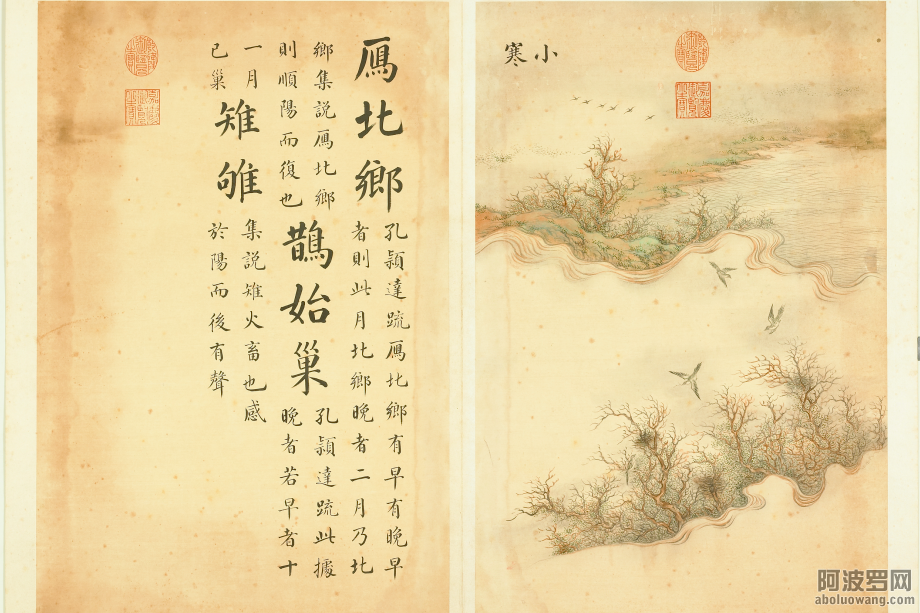 小寒
鴈北鄉
孔穎達疏鴈北鄉有早有晚早
者則此月北鄉晚者二月乃北
鄉集說鴈北鄉
則順陽而復也
鵲始巢
孔穎達疏此據
晚者若早者十
一月
已巢
雉雊
集說雉火畜也感
於陽而後有聲
阿波罗网
aboluowang.com